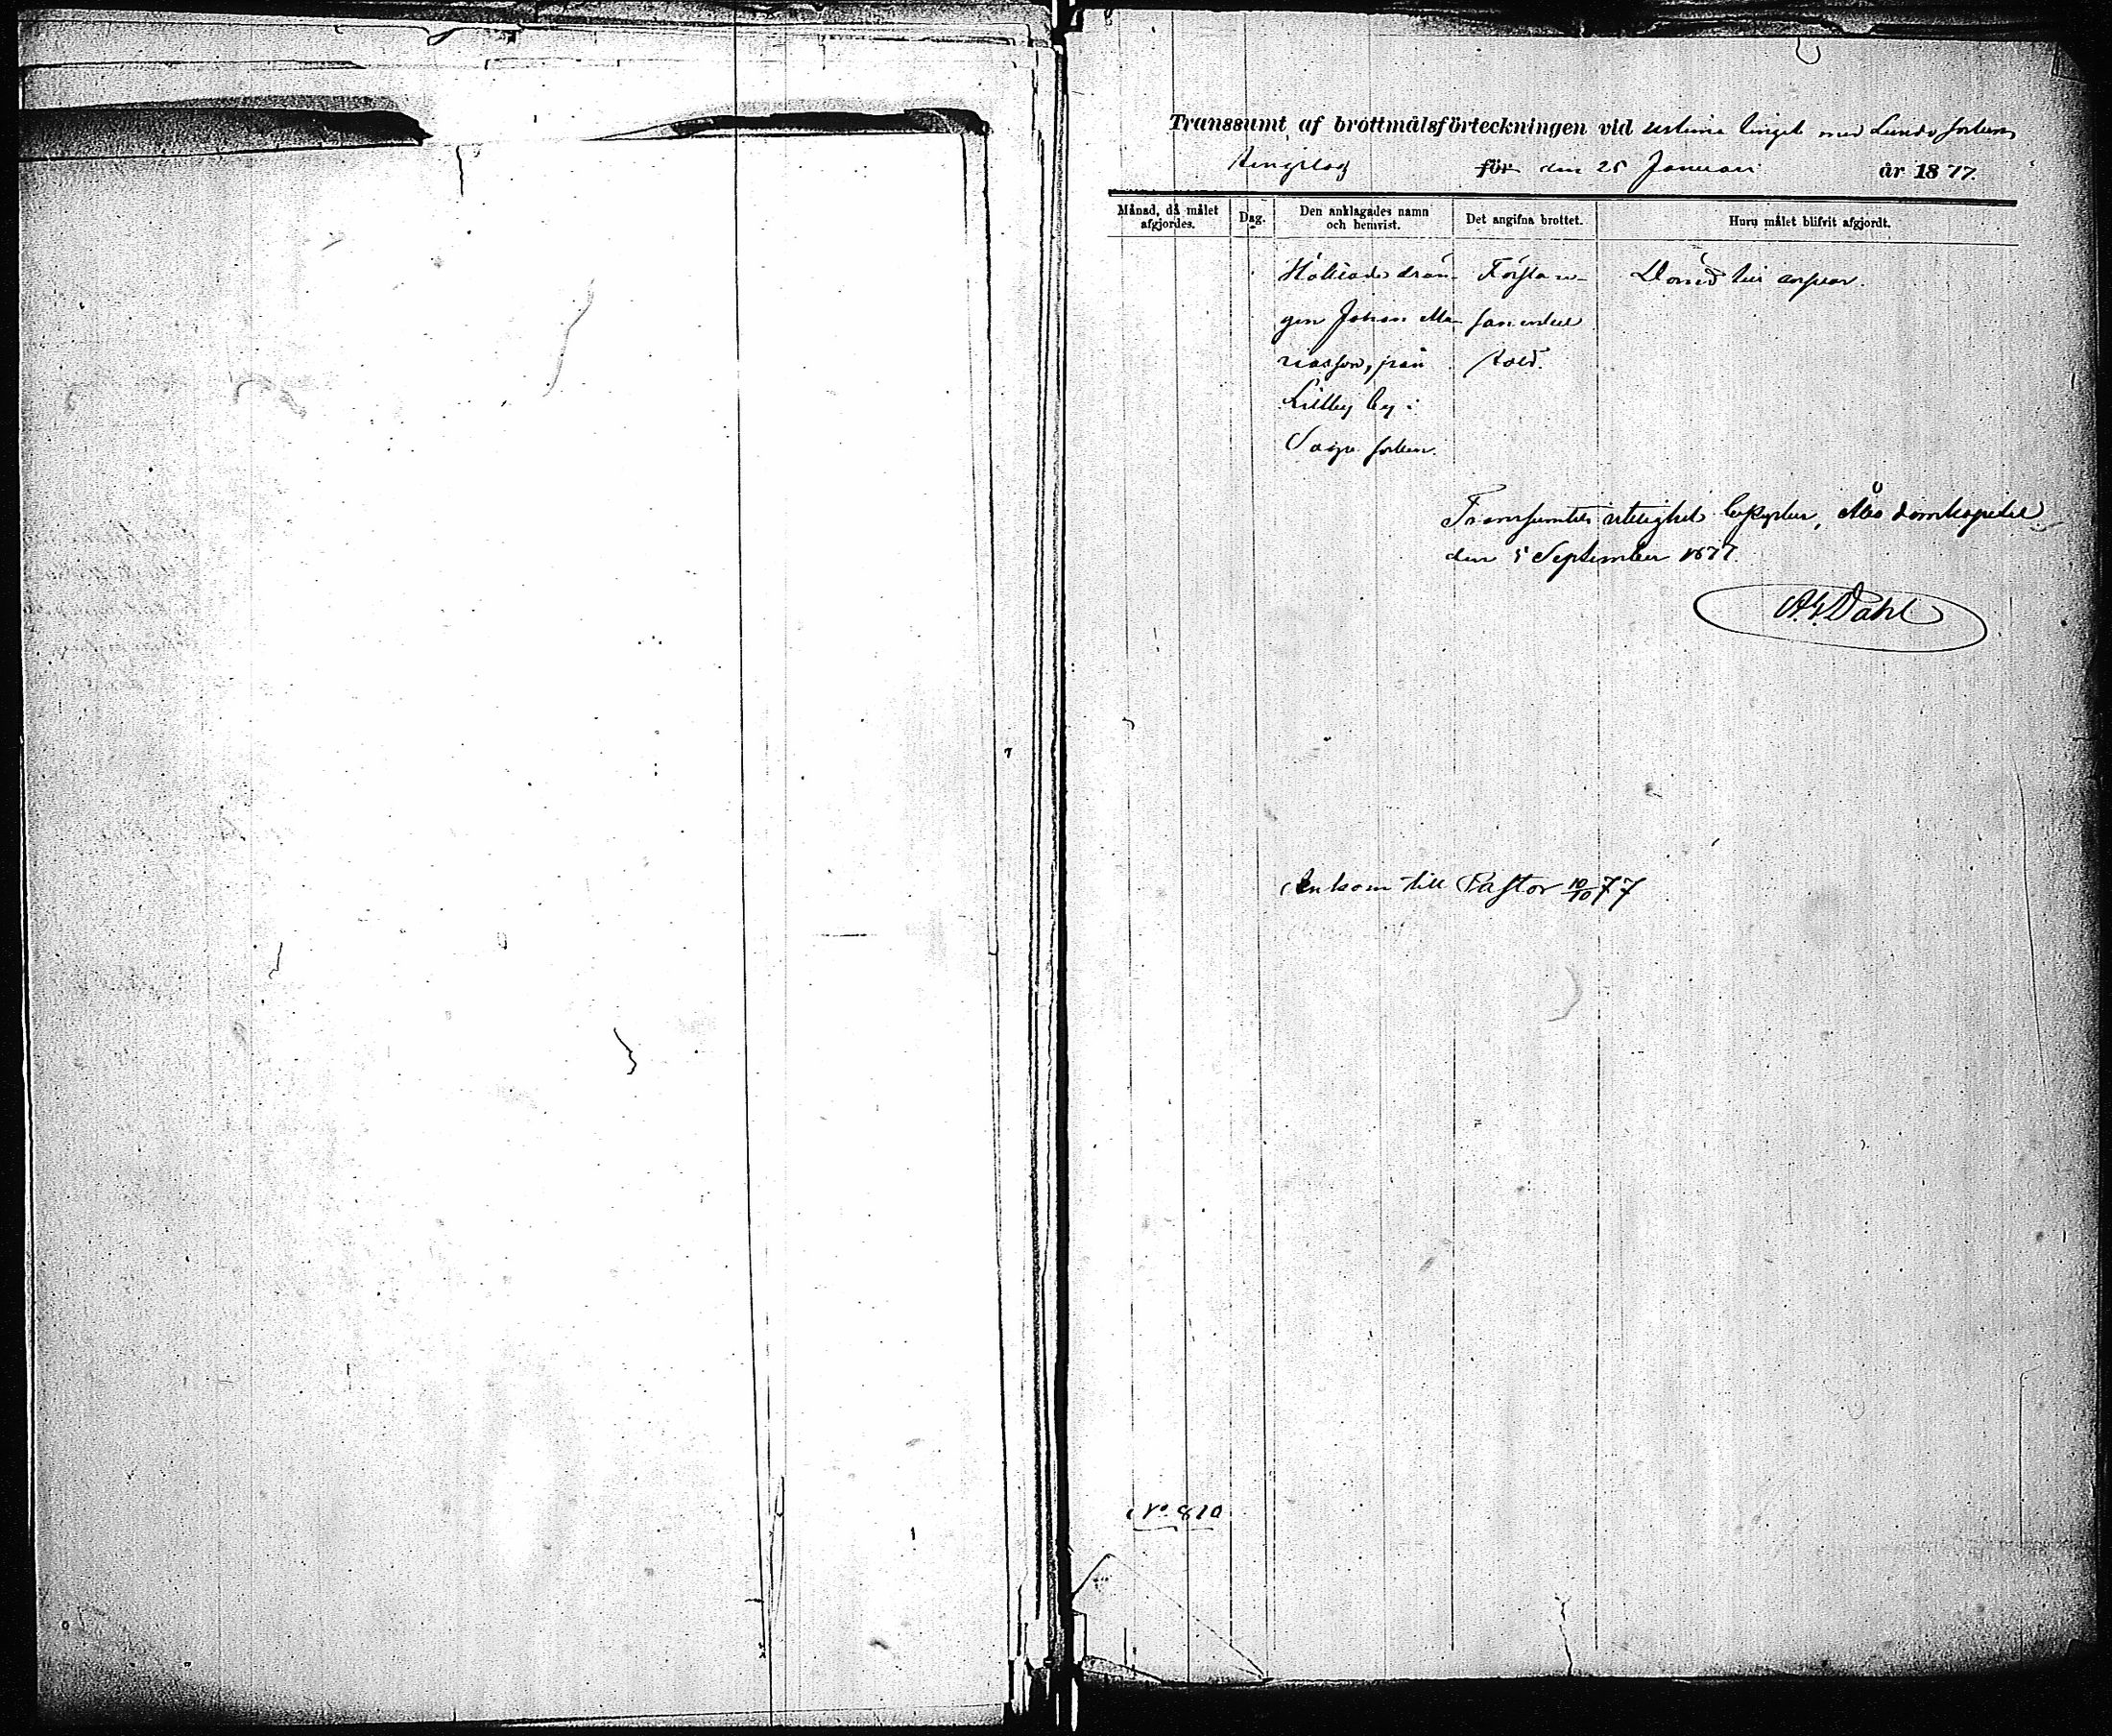 Transsumt af brottmålsförteckningen vid urtima tinget med Lundo sockens
tingslag för den 25 Januari år 1877.
Månad, då målet afgjordes.
Dag.
Den anklagades namn och hemvist.
Det angifna brottet.
Huru målet blifvit afgjordt.
Häktade drän-
gen Johan Ma-
riasson, från
Lilby by i
Sagu socken.
Första re-
san enkel
stöld.
Dömd till ansvar.
Transsumtets riktighet betygar, Åbo domkapitel
den 5 September 1877.
Dahl
Ankom till Pastor 10/10 77
No 810